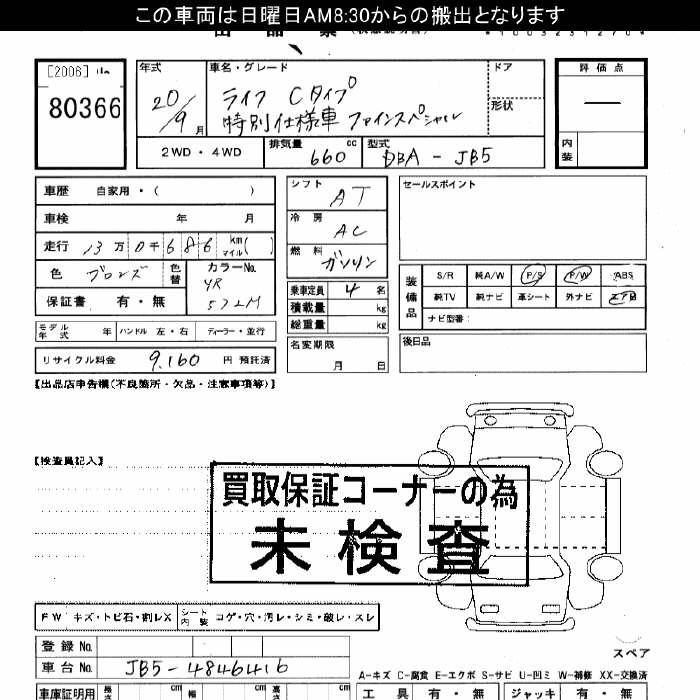 この車両は日曜日AM8:30からの搬出となります
[2006]
80366
年式
20/9 月
車名・グレード
ライフ Cタイプ
特別仕様車 ファインスペシャル
ドア
形状
評価点
内装
2WD・4WD
排気量 660 cc
型式 DBA-JB5
車歴 自家用・( )
車検 年 月
走行 13万0千686 km マイル( )
色 ブロンズ 色替
カラーNo. YR 572M
保証書 有・無
モデル年式 年 ハンドル 左・右 ディーラー・並行
リサイクル料金 9,160 円 預託済
シフト AT
冷房 AC
燃料 ガソリン
乗車定員 4 名
積載量 kg
総重量 kg
名変期限 月 日
セールスポイント
装備品
S/R 純A/W P/S P/W ABS
純TV 純ナビ 革シート 外ナビ エアB
ナビ型番:
後日品
【出品店申告欄(不良箇所・欠品・注意事項等)】
【検査員記入】
買取保証コーナーの為
未検査
FW キズ・トビ石・割レX
シート内装 コゲ・穴・汚レ・シミ・破レ・スレ
登録No.
車台No. JB5-4846416
スペア
A-キズ C-腐食 E-エクボ S-サビ U-凹ミ W-補修 XX-交換済
車庫証明用 長さ cm 幅 cm 高さ cm
工具 有・無 ジャッキ 有・無